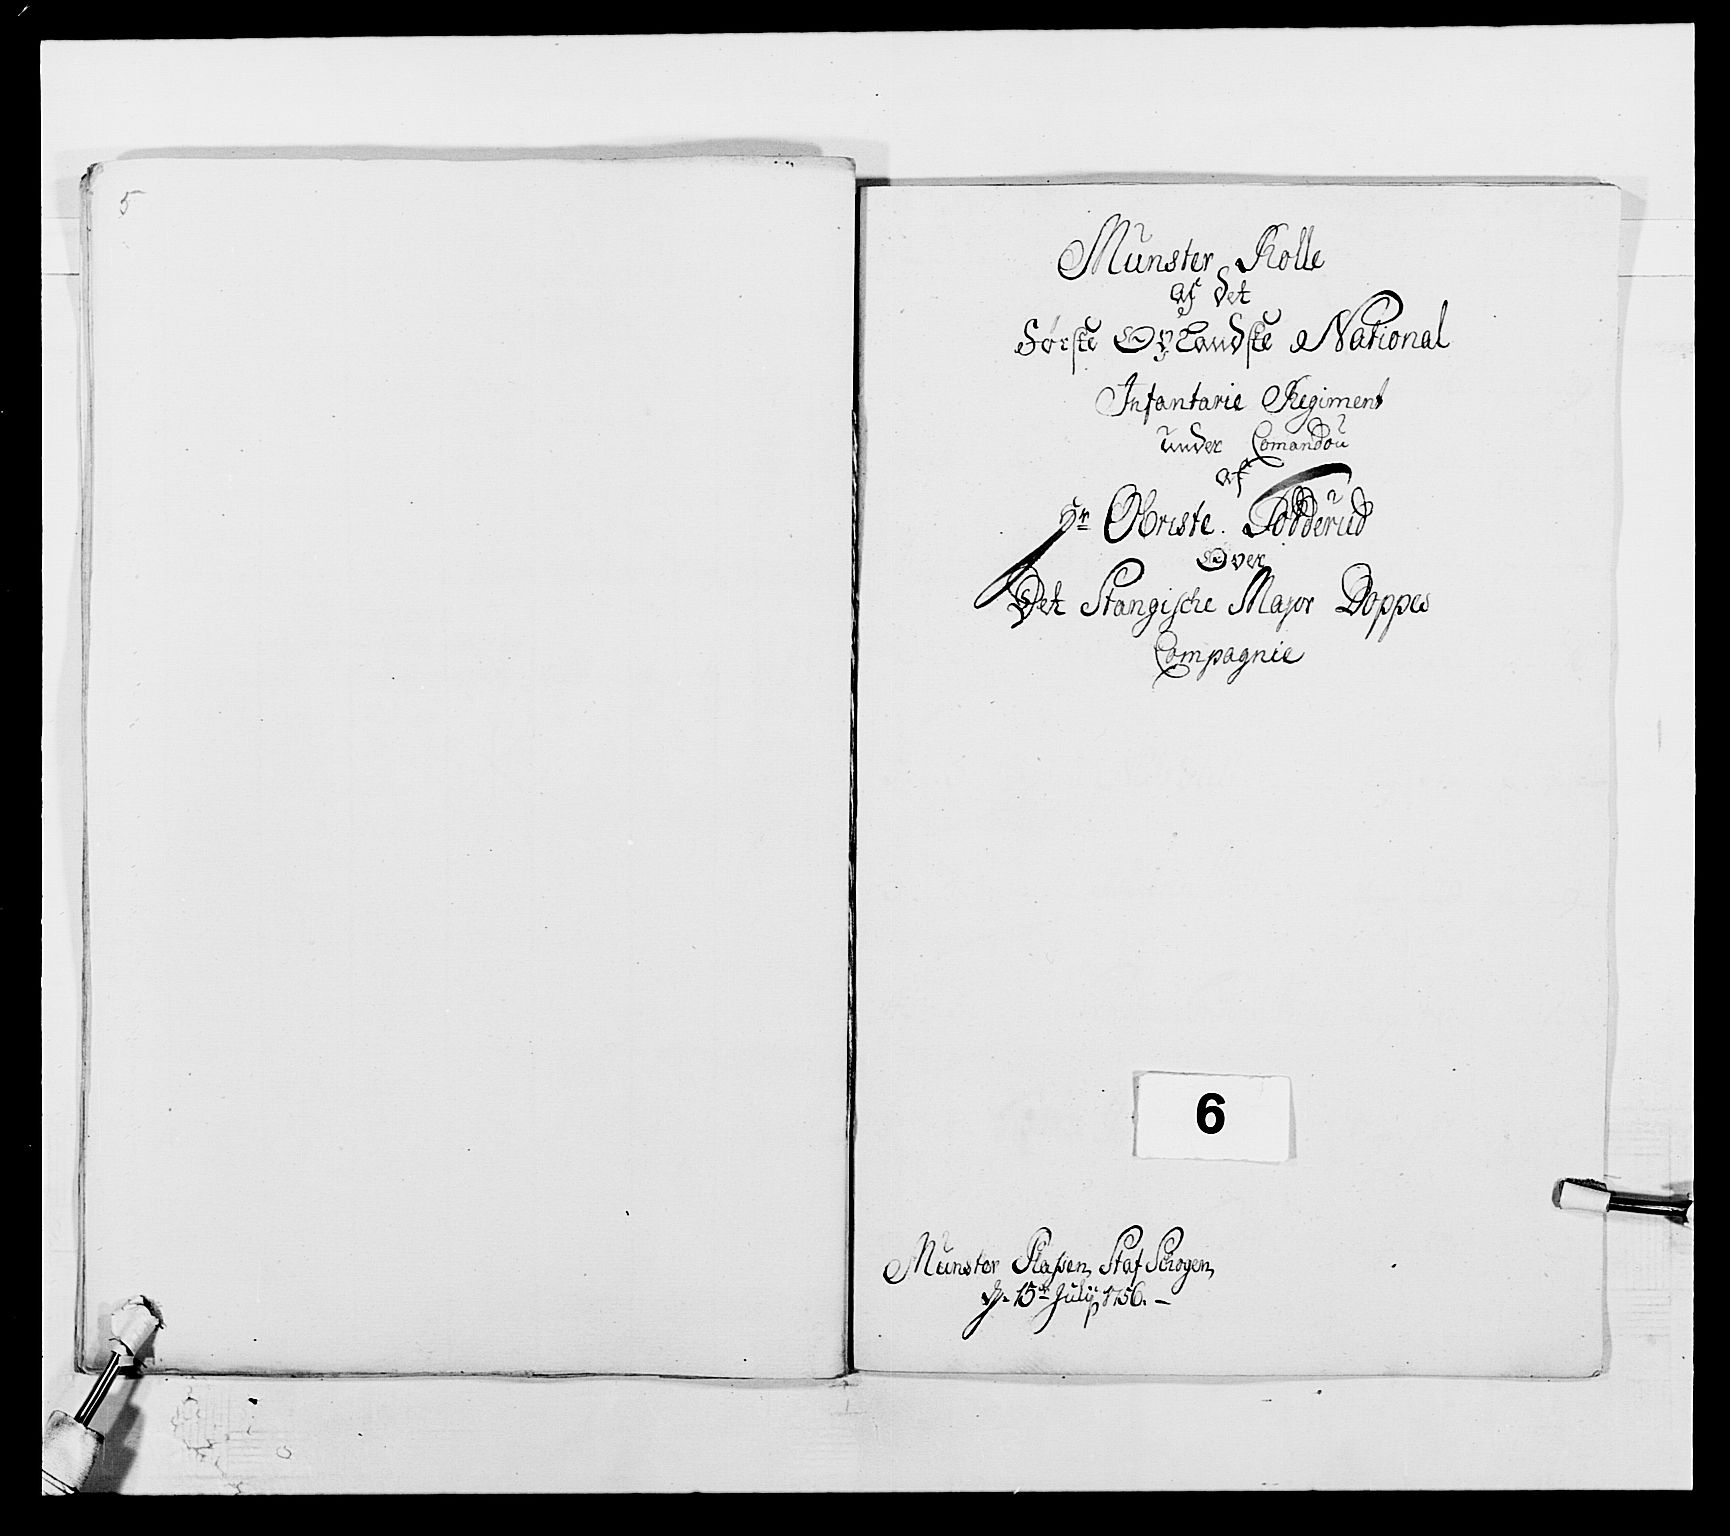 5
Münster Rolle
af det
Første Oplandske National
Infantarie Regiment
ünder Comandoü
af
Hr Obriste
Over
Det Stangische Major Doppes
Compagnie
6
Münster Plassen Staf Schogen,
d. 15de Julij 1756. —